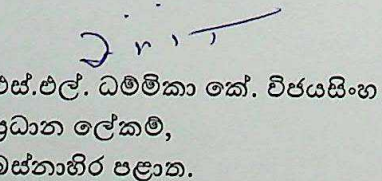 එස්.එල්. ධම්මිකා කේ. විජයසිංහ
ප්‍රධාන ලේකම්,
බස්නාහිර පළාත.